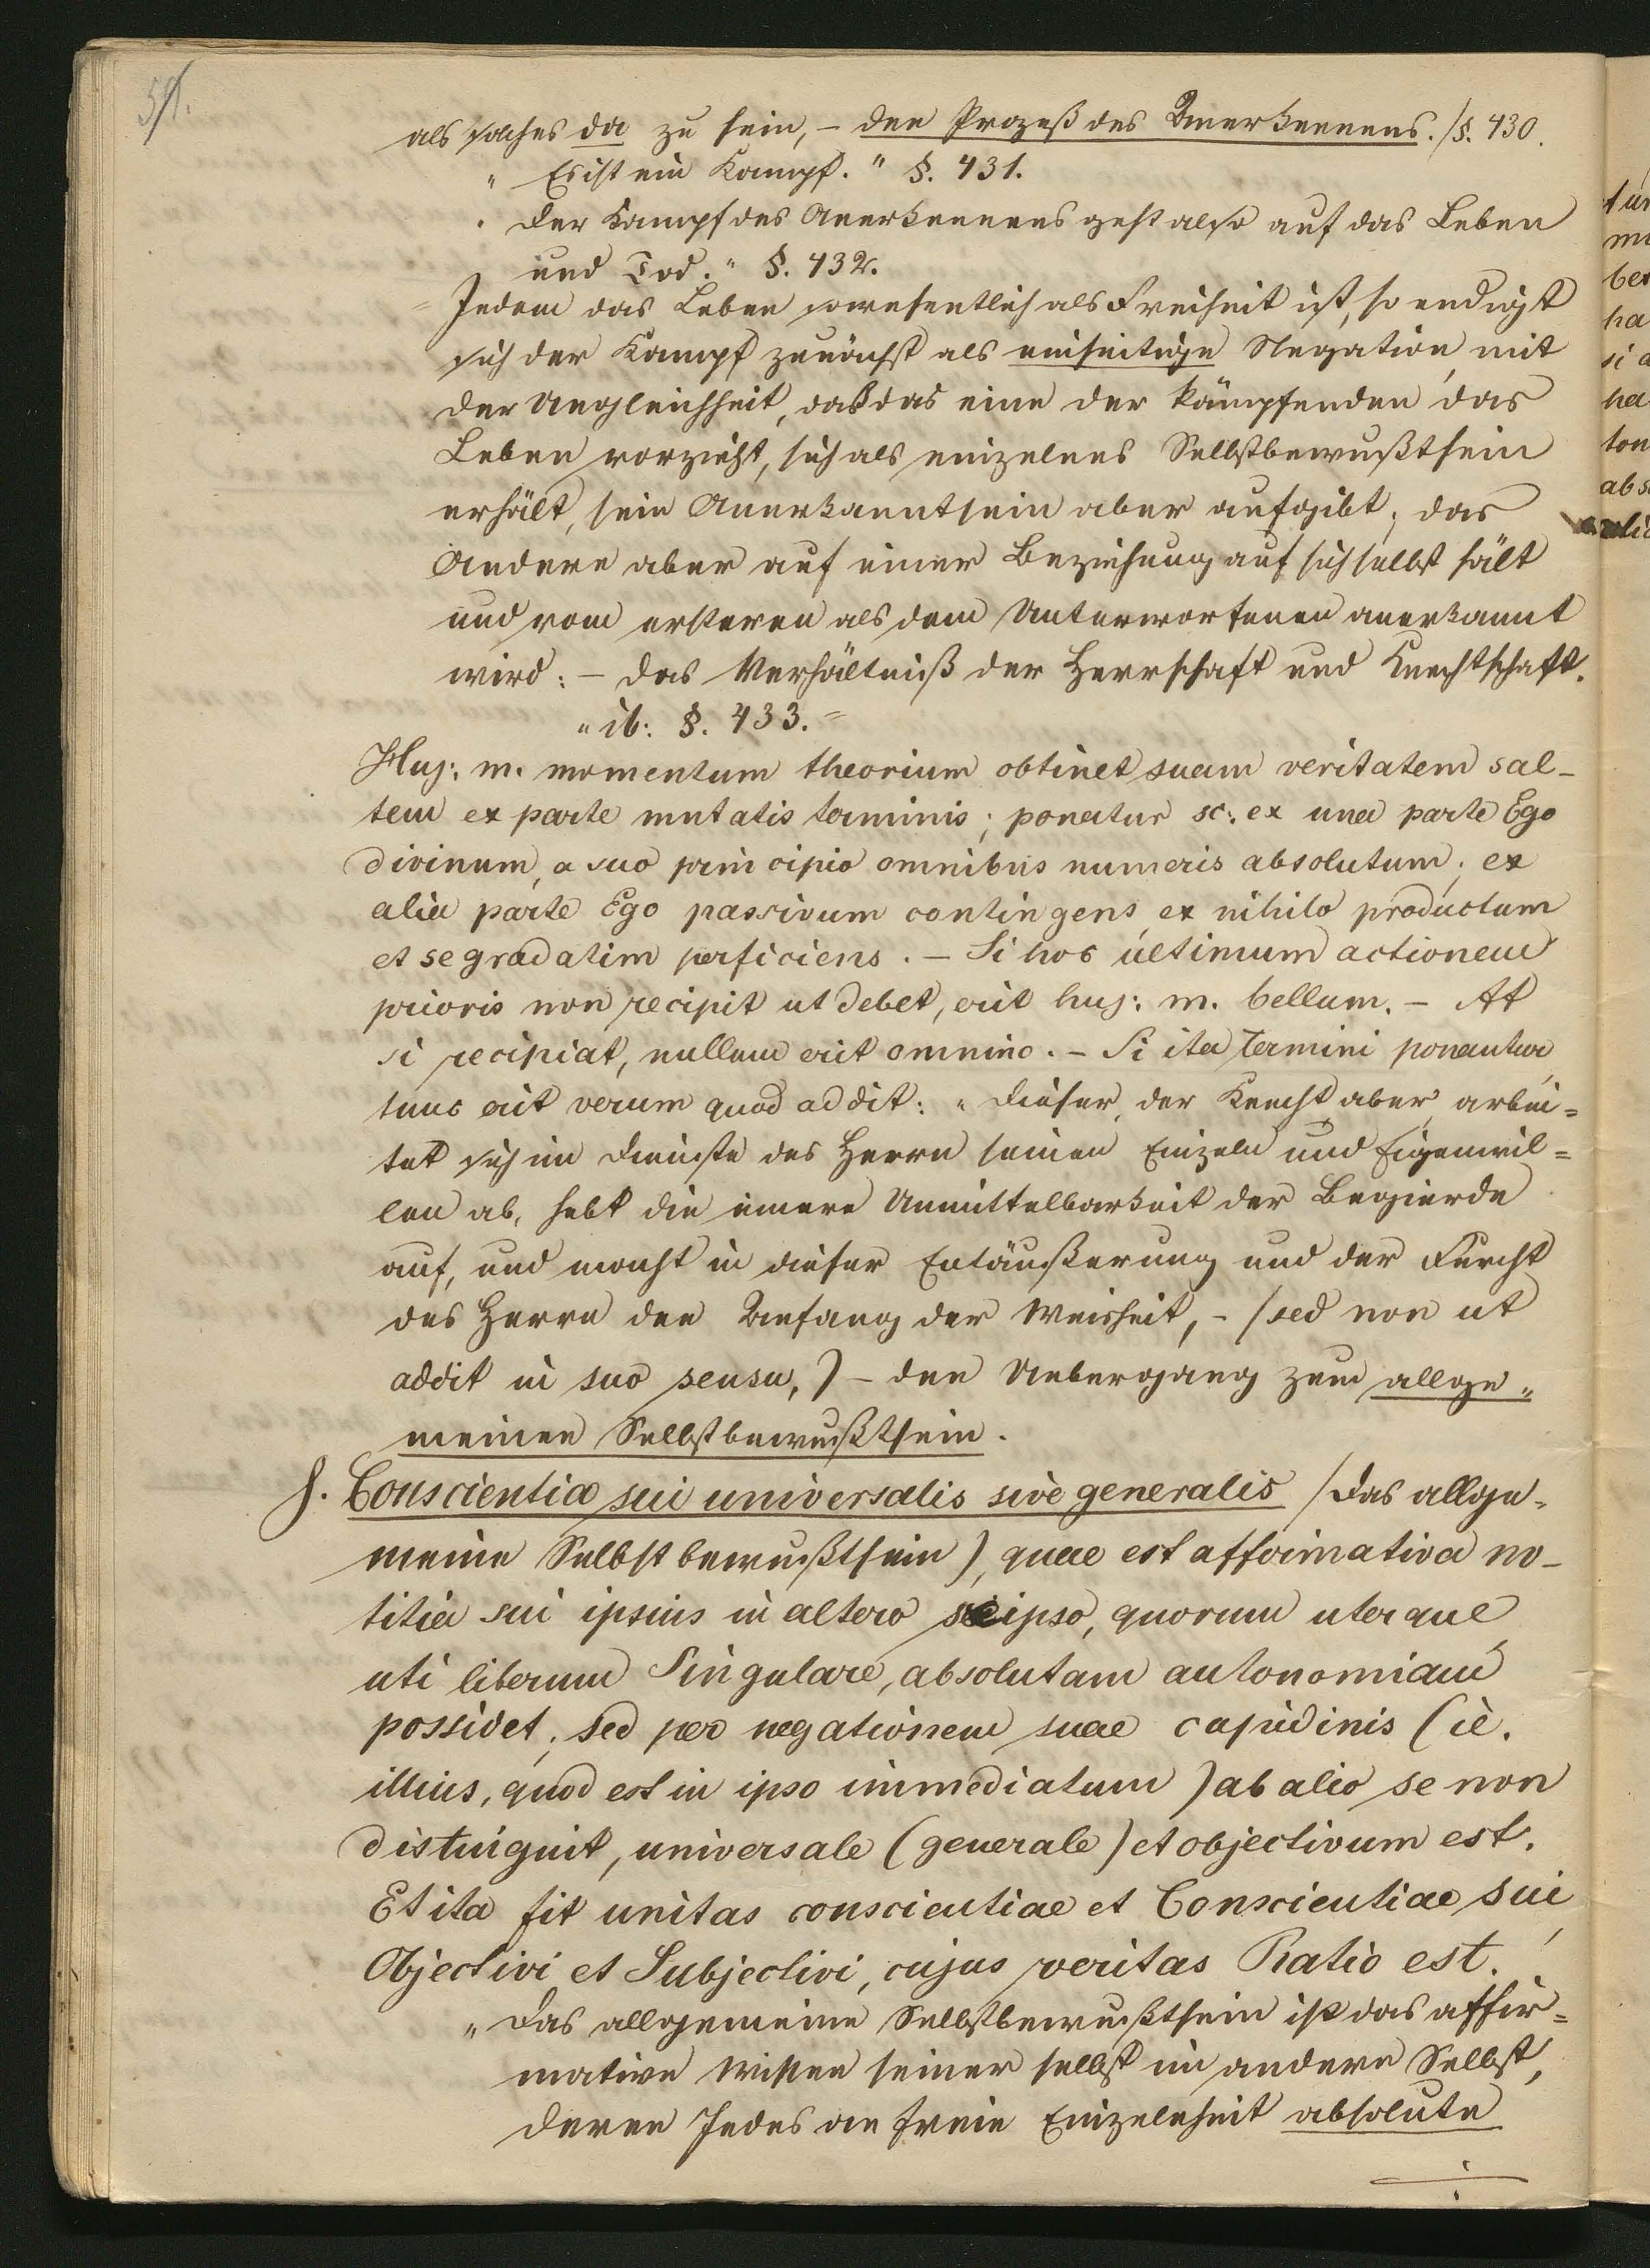 51.
als solches da zu sein, – den Prozeß des Anerkennens. /§. 430.
" Es ist ein Kampf." §. 431.
" Der Kampf des Anerkennens geht also auf das Leben
und Tod." §. 432.
= Indem das Leben so wesentlich als Freiheit ist, so endigt
sich der Kampf zunächst als einseitige Negation, mit
der Ungleichheit, daß das eine der kämpfenden das
Leben vorzieht, sich als einzelnes Selbstbewußtsein
erhält, sein Anerkanntsein aber aufgibt; das
Andere aber auf einer Beziehung auf sich selbst hält
und vom ersteren als dem Unterworfenen anerkannt
wird: – das Verhältniß der Herrschaft und Knechtschaft.
" ib: §. 433. =
Huj: m. momentum theorium obtinet suam veritatem sal-
tem ex parte mutatis terminis; ponatur sc: ex una parte Ego
divinum, a suo principio omnibus numeris absolutum; ex
alia parte Ego passivum contingens, ex nihilo productum
et se gradatim perficiens. – Si hoc ultimum actionem
prioris non recipit ut debet, erit huj: m. bellum. – At
si recipiat, nullum erit omnino. – Si ita Termini ponantur
tunc erit verum quod addit: " Dieser, der Knecht aber, arbei=
tet sich im Dienste des Herrn seinen Einzeln und Eigenwil=
len ab, hebt die innere Unmittelbarkeit der Begierde
auf, und macht in dieser Entäußerung und der Furcht
des Herrn den Anfang der Weisheit, – /sed non ut
addit in suo sensu,) – den Uebergang zum allge"
meinen Selbstbewußtsein.
γ. Conscientia sui universalis sive generalis /das allge-
meine Selbstbewußtsein), quae est affirmativa no-
titia sui ipsius in altero seipso, quorum uterque
uti liberum Singulare, absolutam autonomiam
possidet; sed per negationem suae cupidinis (ie.
illius, quod est in ipso immediatum) ab alio se non
distinguit, universale (generale) et objectivum est.
Et ita fit unitas conscientiae et Conscientiae sui,
Objectivi et Subjectivi, cujus veritas Ratio est.
" Das allgemeine Selbstbewußtsein ist das affir=
mative Wissen seiner selbst im andern Selbst,
deren Jedes als freie Einzelnheit absolute